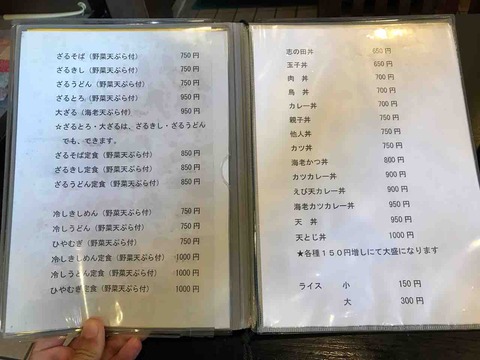 ざるそば（野菜天ぷら付） 750円
ざるきし（野菜天ぷら付） 750円
ざるうどん（野菜天ぷら付） 750円
ざるとろ（野菜天ぷら付） 950円
大ざる（海老天ぷら付） 950円
☆ざるとろ・大ざるは、ざるきし・ざるうどん
でも、できます。
ざるそば定食（野菜天ぷら付） 850円
ざるきし定食（野菜天ぷら付） 850円
ざるうどん定食（野菜天ぷら付） 850円
冷しきしめん（野菜天ぷら付） 750円
冷しうどん（野菜天ぷら付） 750円
ひやむぎ（野菜天ぷら付） 750円
冷しきしめん定食（野菜天ぷら付） 1000円
冷しうどん定食（野菜天ぷら付） 1000円
ひやむぎ定食（野菜天ぷら付） 1000円
志の田丼 650円
玉子丼 650円
肉丼 700円
鳥丼 700円
カレー丼 700円
親子丼 700円
他人丼 750円
カツ丼 750円
海老かつ丼 800円
カツカレー丼 900円
えび天カレー丼 900円
海老カツカレー丼 950円
天丼 950円
天とじ丼 1000円
★各種150円増しにて大盛になります
ライス 小 150円
大 300円